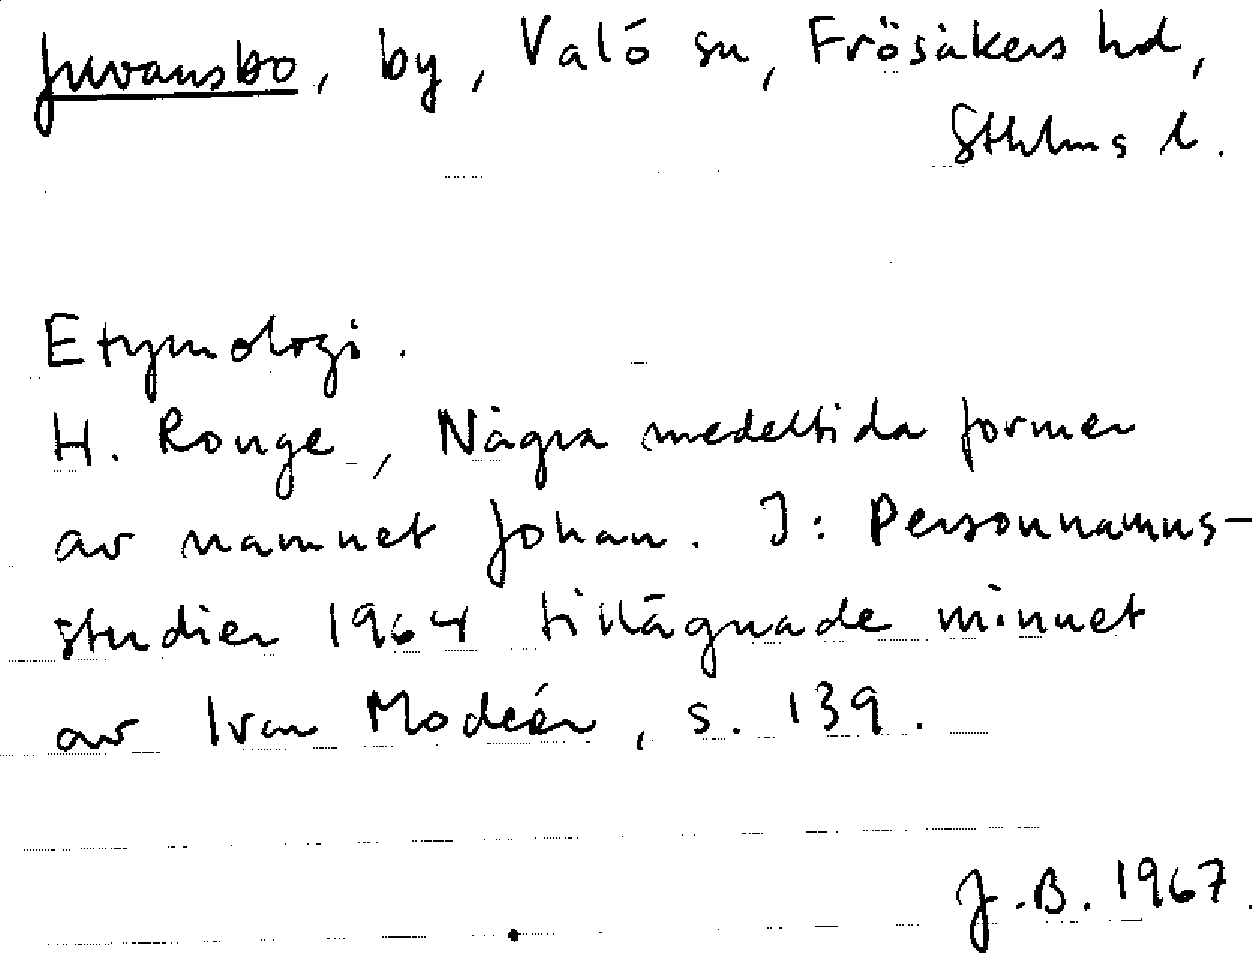 Juvansbo, by, Valö sn, Frösåkers hd,
Sthlms l.
Etymologi.
H. Ronge, Några medeltida former
av namnet Johan. I: Personnamns-
studier 1964 tillägnade minnet
av Ivar Modéer, s. 139.
J.B. 1967.